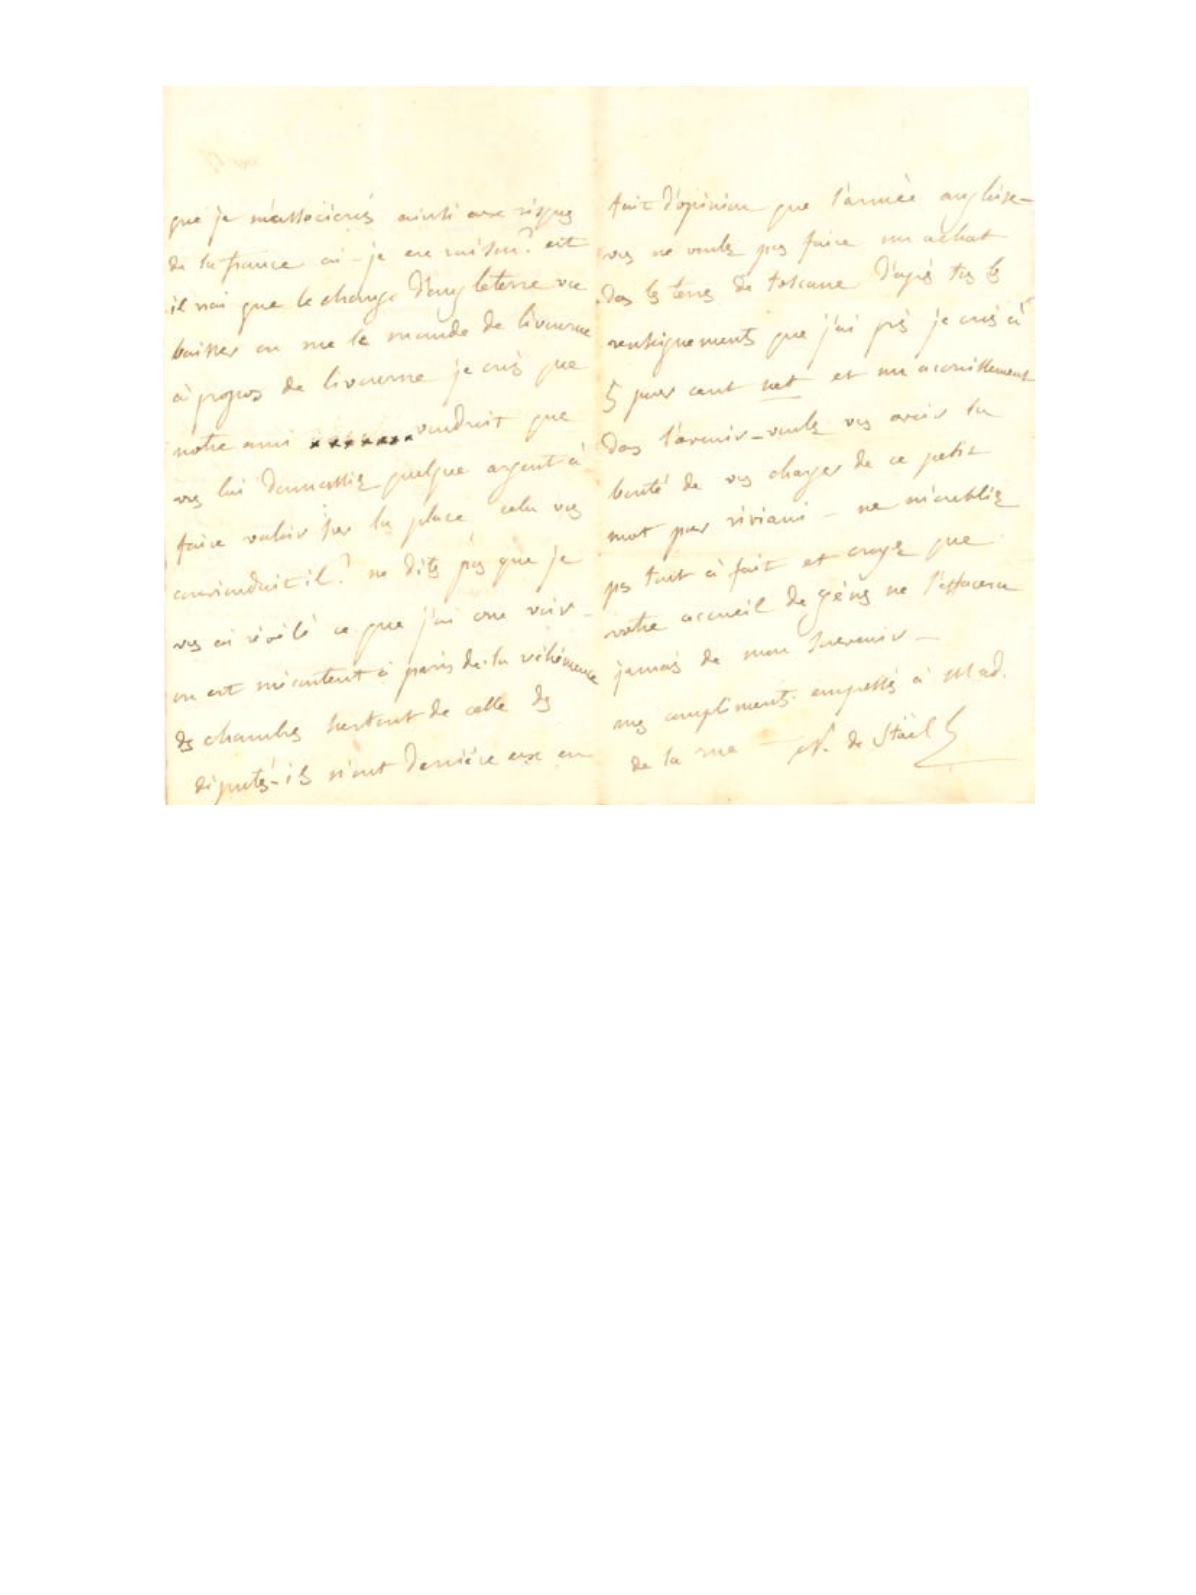 que je m'associerois ainsi aux risques
de la france ai-je eu raison? est
il vrai que le change d'angleterre va
baisser on me le mande de livourne
à propos de livourne je crois que
notre ami xxxxxxx voudroit que
vs lui donnassiez quelque argent à
faire valoir sur la place cela vs
conviendroit il? ne dites pas que je
vs ai révélé ce que j'ai cru voir -
on est mécontent à paris de la véhémence
des chambres surtout de celle des
députés - ils n'ont derrière eux en
fait d'opinion que l'armée angloise -
vs ne voulez pas faire un achat
das les terres de toscane d'après ts les
renseignements que j'ai pris je crois à
5 pour cent net et un accroissement
das l'avenir - voulez vs avoir la
bonté de vs charger de ce petit
mot pour viviani - ne m'oubliez
ps tout à fait et croyez que
votre accueil de gênes ne s'effacera
jamais de mon souvenir -
mes compliments empressés à Mad.
de la rue - N. de Staël